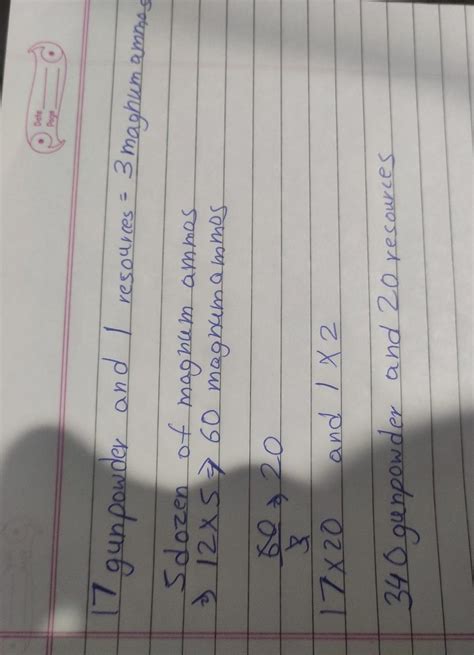 Date
Page
17 gunpowder and 1 resources = 3 maghum ammos
5 dozen of magnum ammos
⇒ 12 × 5 ⇒ 60 maghum ammos
60/3 ⇒ 20
17 × 20 and 1 × 2
340 gunpowder and 20 resources